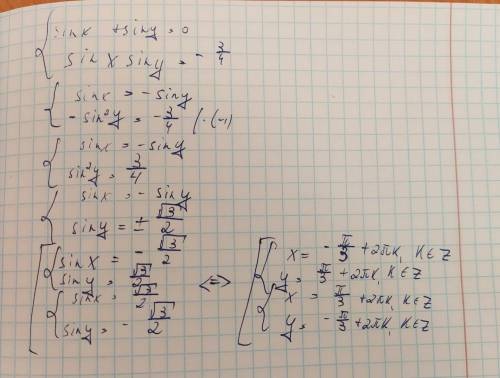 sinx + siny = 0
sin x sin y = - 3/4
sinx = - siny
- sin²y = - 3/4 | · (-1)
sinx = - siny
sin²y = 3/4
sinx = - siny
siny = ± √3/2
sinx = - √3/2
siny = √3/2
sinx = √3/2
siny = - √3/2
<=>
x = - π/3 + 2πk, k∈Z
y = π/3 + 2πk, k∈Z
x = π/3 + 2πk, k∈Z
y = - π/3 + 2πk, k∈Z